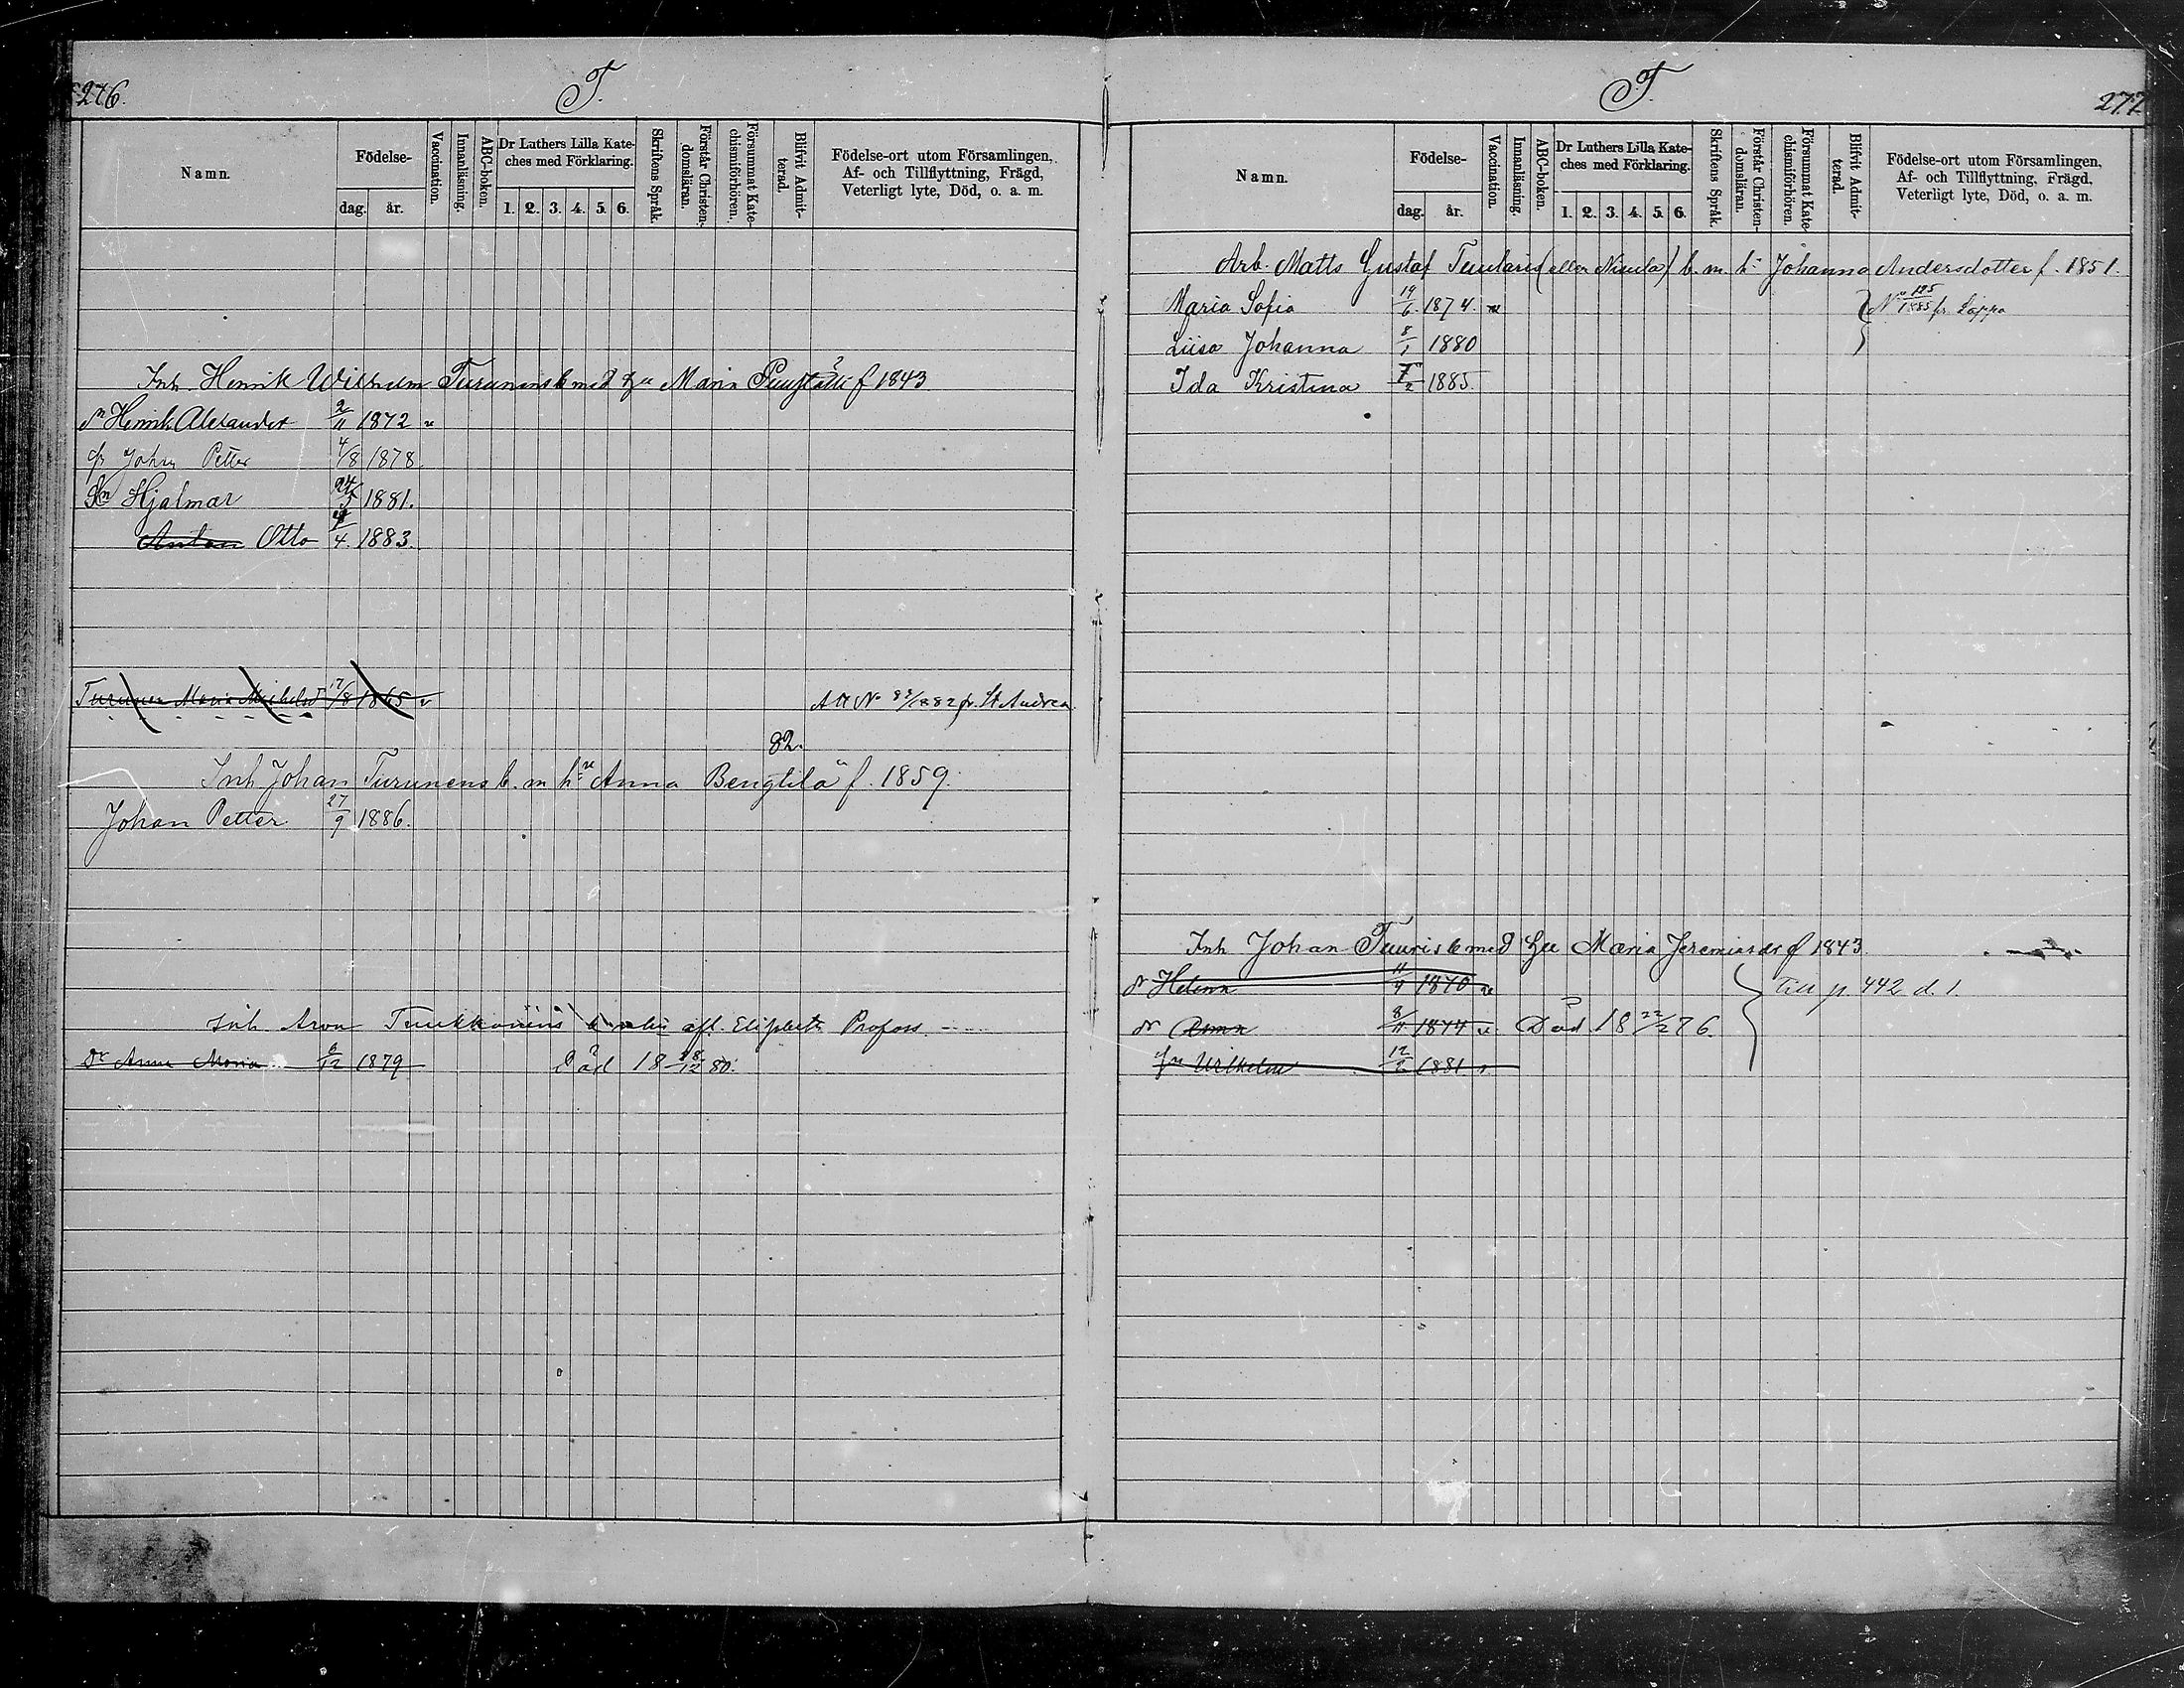 276.
T.
Namn.
Födelse-
dag.
år.
Vaccination.
Innanläsning.
ABC-boken.
Dr Luthers Lilla Kate-
ches med Förklaring.
1. 2. 3. 4. 5. 6.
Skriftens Språk.
Förstår Christen-
domsläran.
Försummat Kate-
chismiförhören.
Blifvit Admit-
terad.
Födelse-ort utom Församlingen,
Af- och Tillflyttning, Frägd,
Veterligt lyte, Död, o. a. m.
Inh. Henrik Wilhelm Turunens b med hu Maria f 1843
Henrik Alexander 2/11 1872 v
Johan Petter 4/8 1878
Hjalmar 24/5 1881.
Anton Otto 4. 1883.
Turunen Maria Michelsd 17/8 1865 v Att No 83/1882 fr. St Andrea
82.
Inh Johan Turunens b. m hu Anna Bengtilä f. 1859.
Johan Petter 27/9 1886.
Inh Aron Tuukkainens afl. Elisabeth Profoss
Dr Anna Maria 6/12 1879 Död 18 28/12 80.
T.
277
Namn.
Födelse-
dag.
år.
Vaccination.
Innanläsning.
ABC-boken.
Dr Luthers Lilla Kate-
ches med Förklaring.
1. 2. 3. 4. 5. 6.
Skriftens Språk.
Förstår Christen-
domsläran.
Försummat Kate-
chismiförhören.
Blifvit Admit-
terad.
Födelse-ort utom Församlingen,
Af- och Tillflyttning, Frägd,
Veterligt lyte, Död, o. a. m.
Arb. Matts Gustaf (eller Niuula) b. m. h Johanna Andersdotter f. 1851.
Maria Sofia 19/6 1874. v No 125/1885 fr. Lappo
Liisa Johanna 8/1 1880
Ida Kristina 1885.
Inh Johan Tuuris b med hu Maria Jeremiasdr f 1843
dr Helena 11/4 1870 v till p. 442 d. 1.
dr Anna 8/11 1874 v Död 18 22/2 76.
Wilhelm 12/2 1881 v